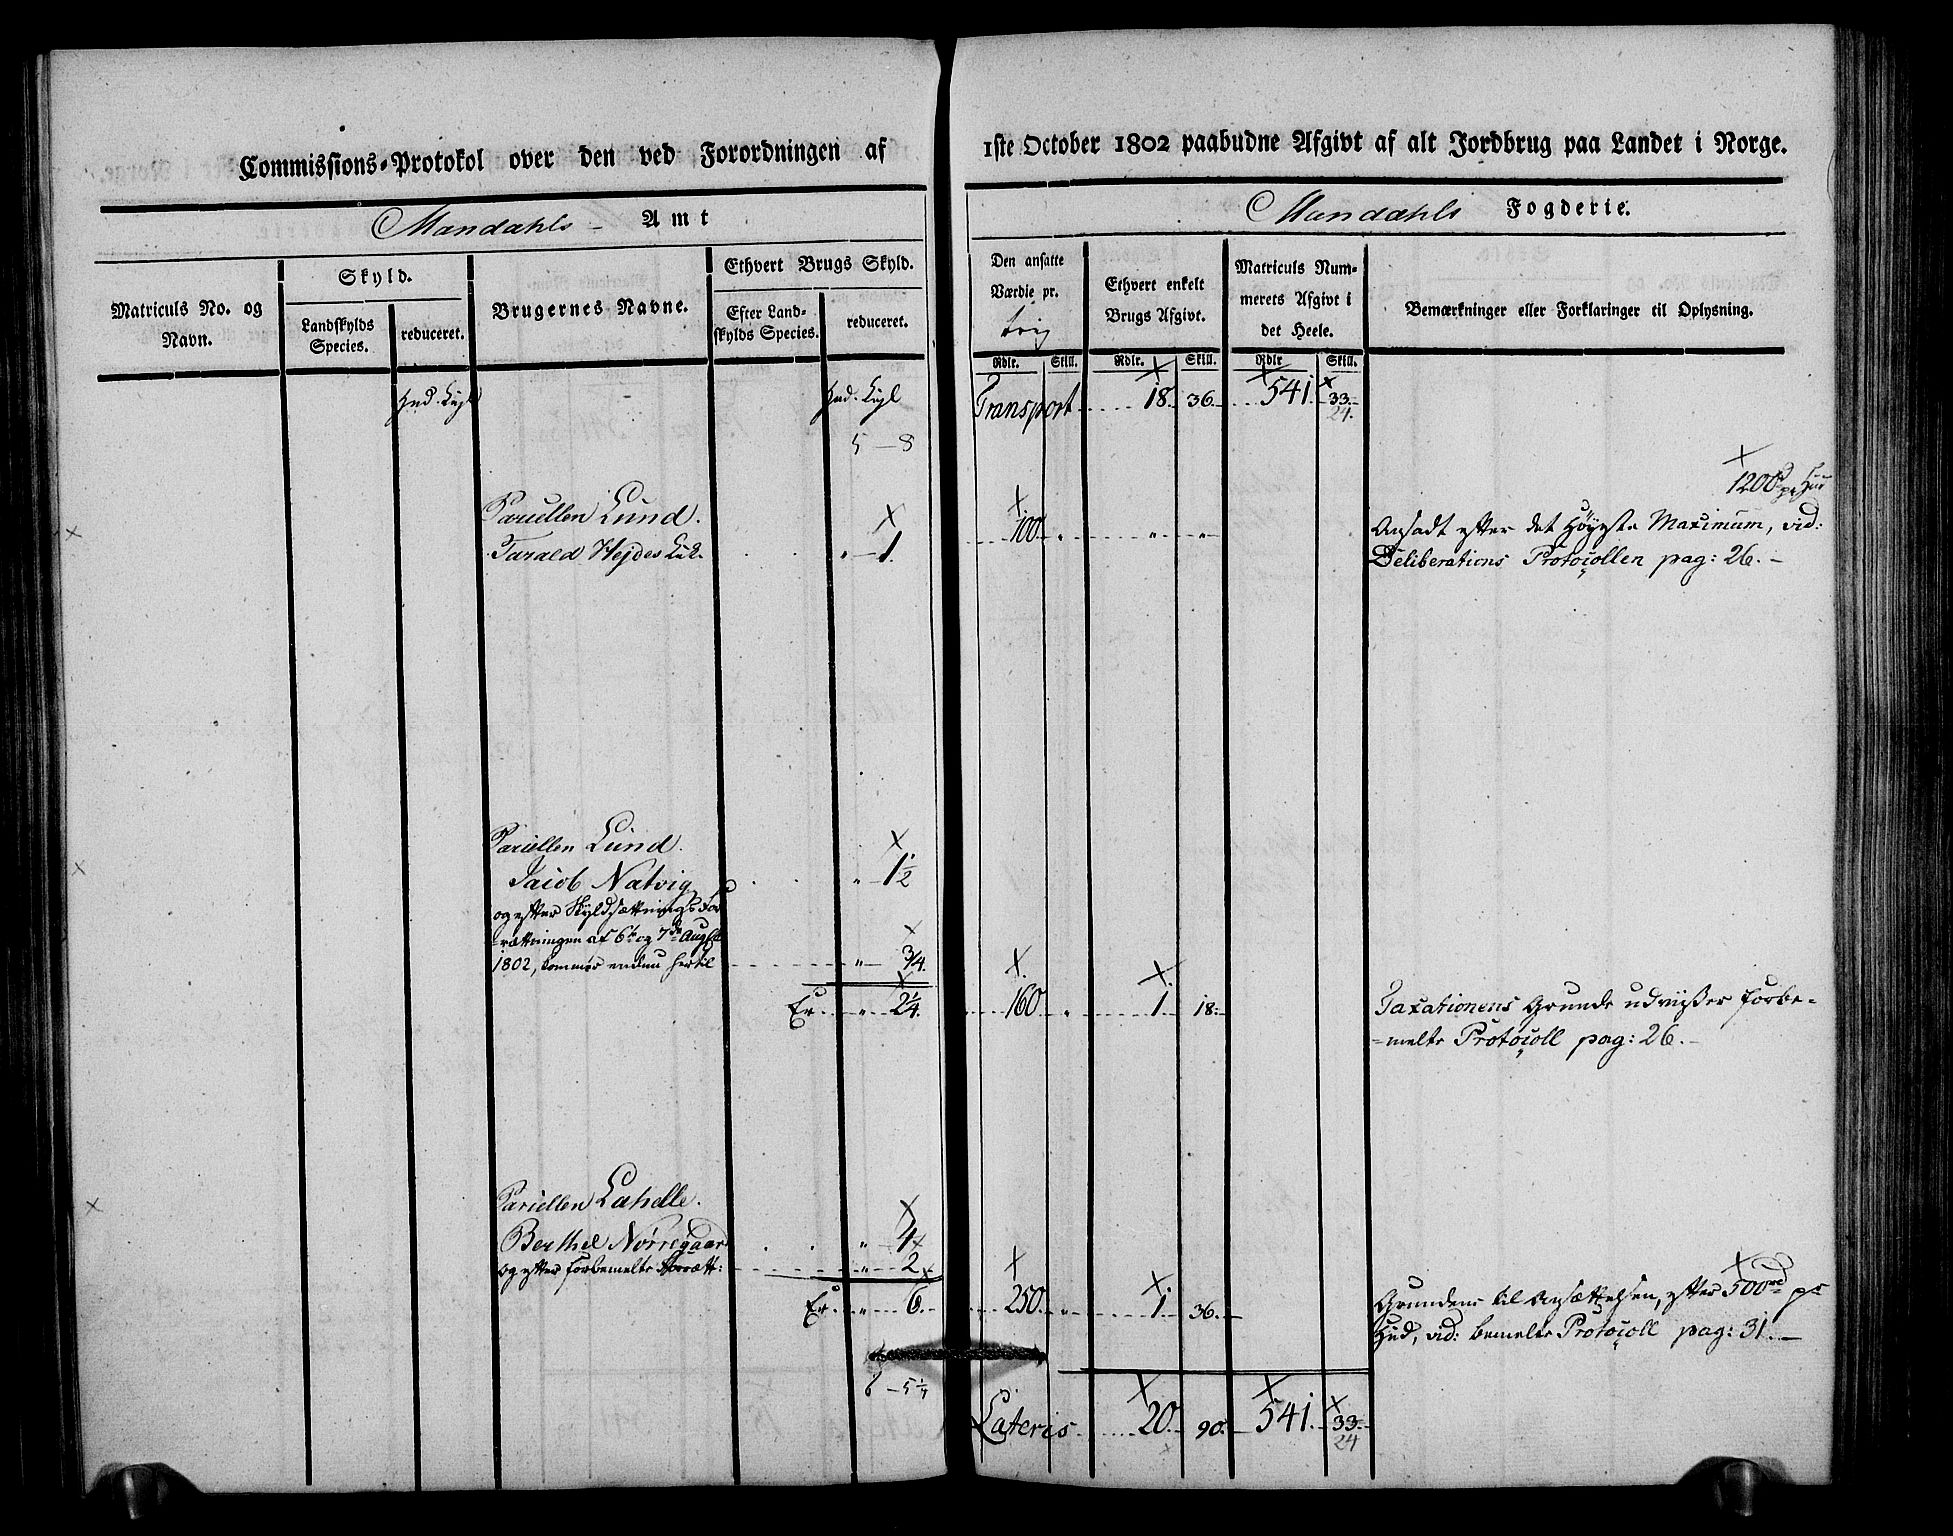 Commissions-Protokol over den ved Forordningen af
Mandahls Amt
Matriculs No. og Navn.
Skyld.
Landskylds Species.
reduceret.
Brugernes Navne.
Ethvert Brugs Skyld.
Efter Landskylds Species.
reduceret.
5 - 8
Parcellen Lund.
Tarald Hejdes Enk.
" - 1.
Parcellen Lund.
Jacob Natvig
" - 1 1/2
og efter Skyldsætnings For
=rætningen af 6te og 7de August
1802, kommer endnu hertil
" - 3/4.
Er. " 2 1/4.
Parcellen Lahelle.
Berthel Nörregaard
" 4
og efter forbemelte Forrætt:
" 2
Er. " - 6.
6 - 5 1/4
1ste October 1802 paabudne Afgivt af alt Jordbrug paa Landet i Norge.
Mandahls Fogderie.
Den ansatte Værdie pr.
Ethvert enkelt Brugs Afgivt.
Matriculs Nummerets Afgivt i det Heele.
Bemærkninger eller Forklaringer til Oplysning.
Rdlr. Skill. Rdlr. Skill. Rdlr Skill.
Transport 18. 36. 541. 33.
24.
1200 pr Hud
100. " " "
Ansadt efter det Høyeste Maximum, vid:
Deliberations Protocollen pag: 26. -
160. " 1. 18.
Taxationens Grunde udviißer forbe-
-melte Protocoll pag: 26. -
250. " 1. 36.
Grundene til Ansættelsen, efter 500 rd pr
Hud, vid: bemelte Protocoll pag: 31. -
Lateris 20. 90. 541. 33.
24